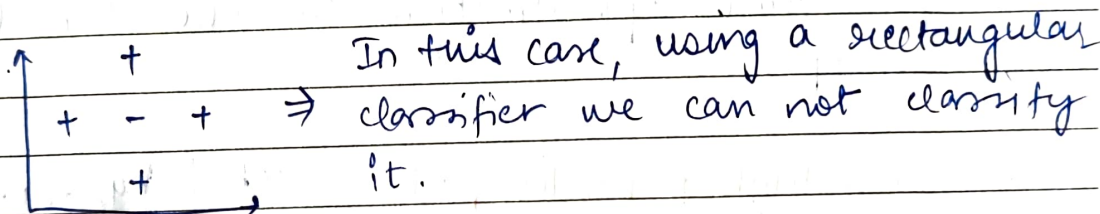 + In this case, using a rectangular
+ - + ⇒ classifier we can not classify
+ it.